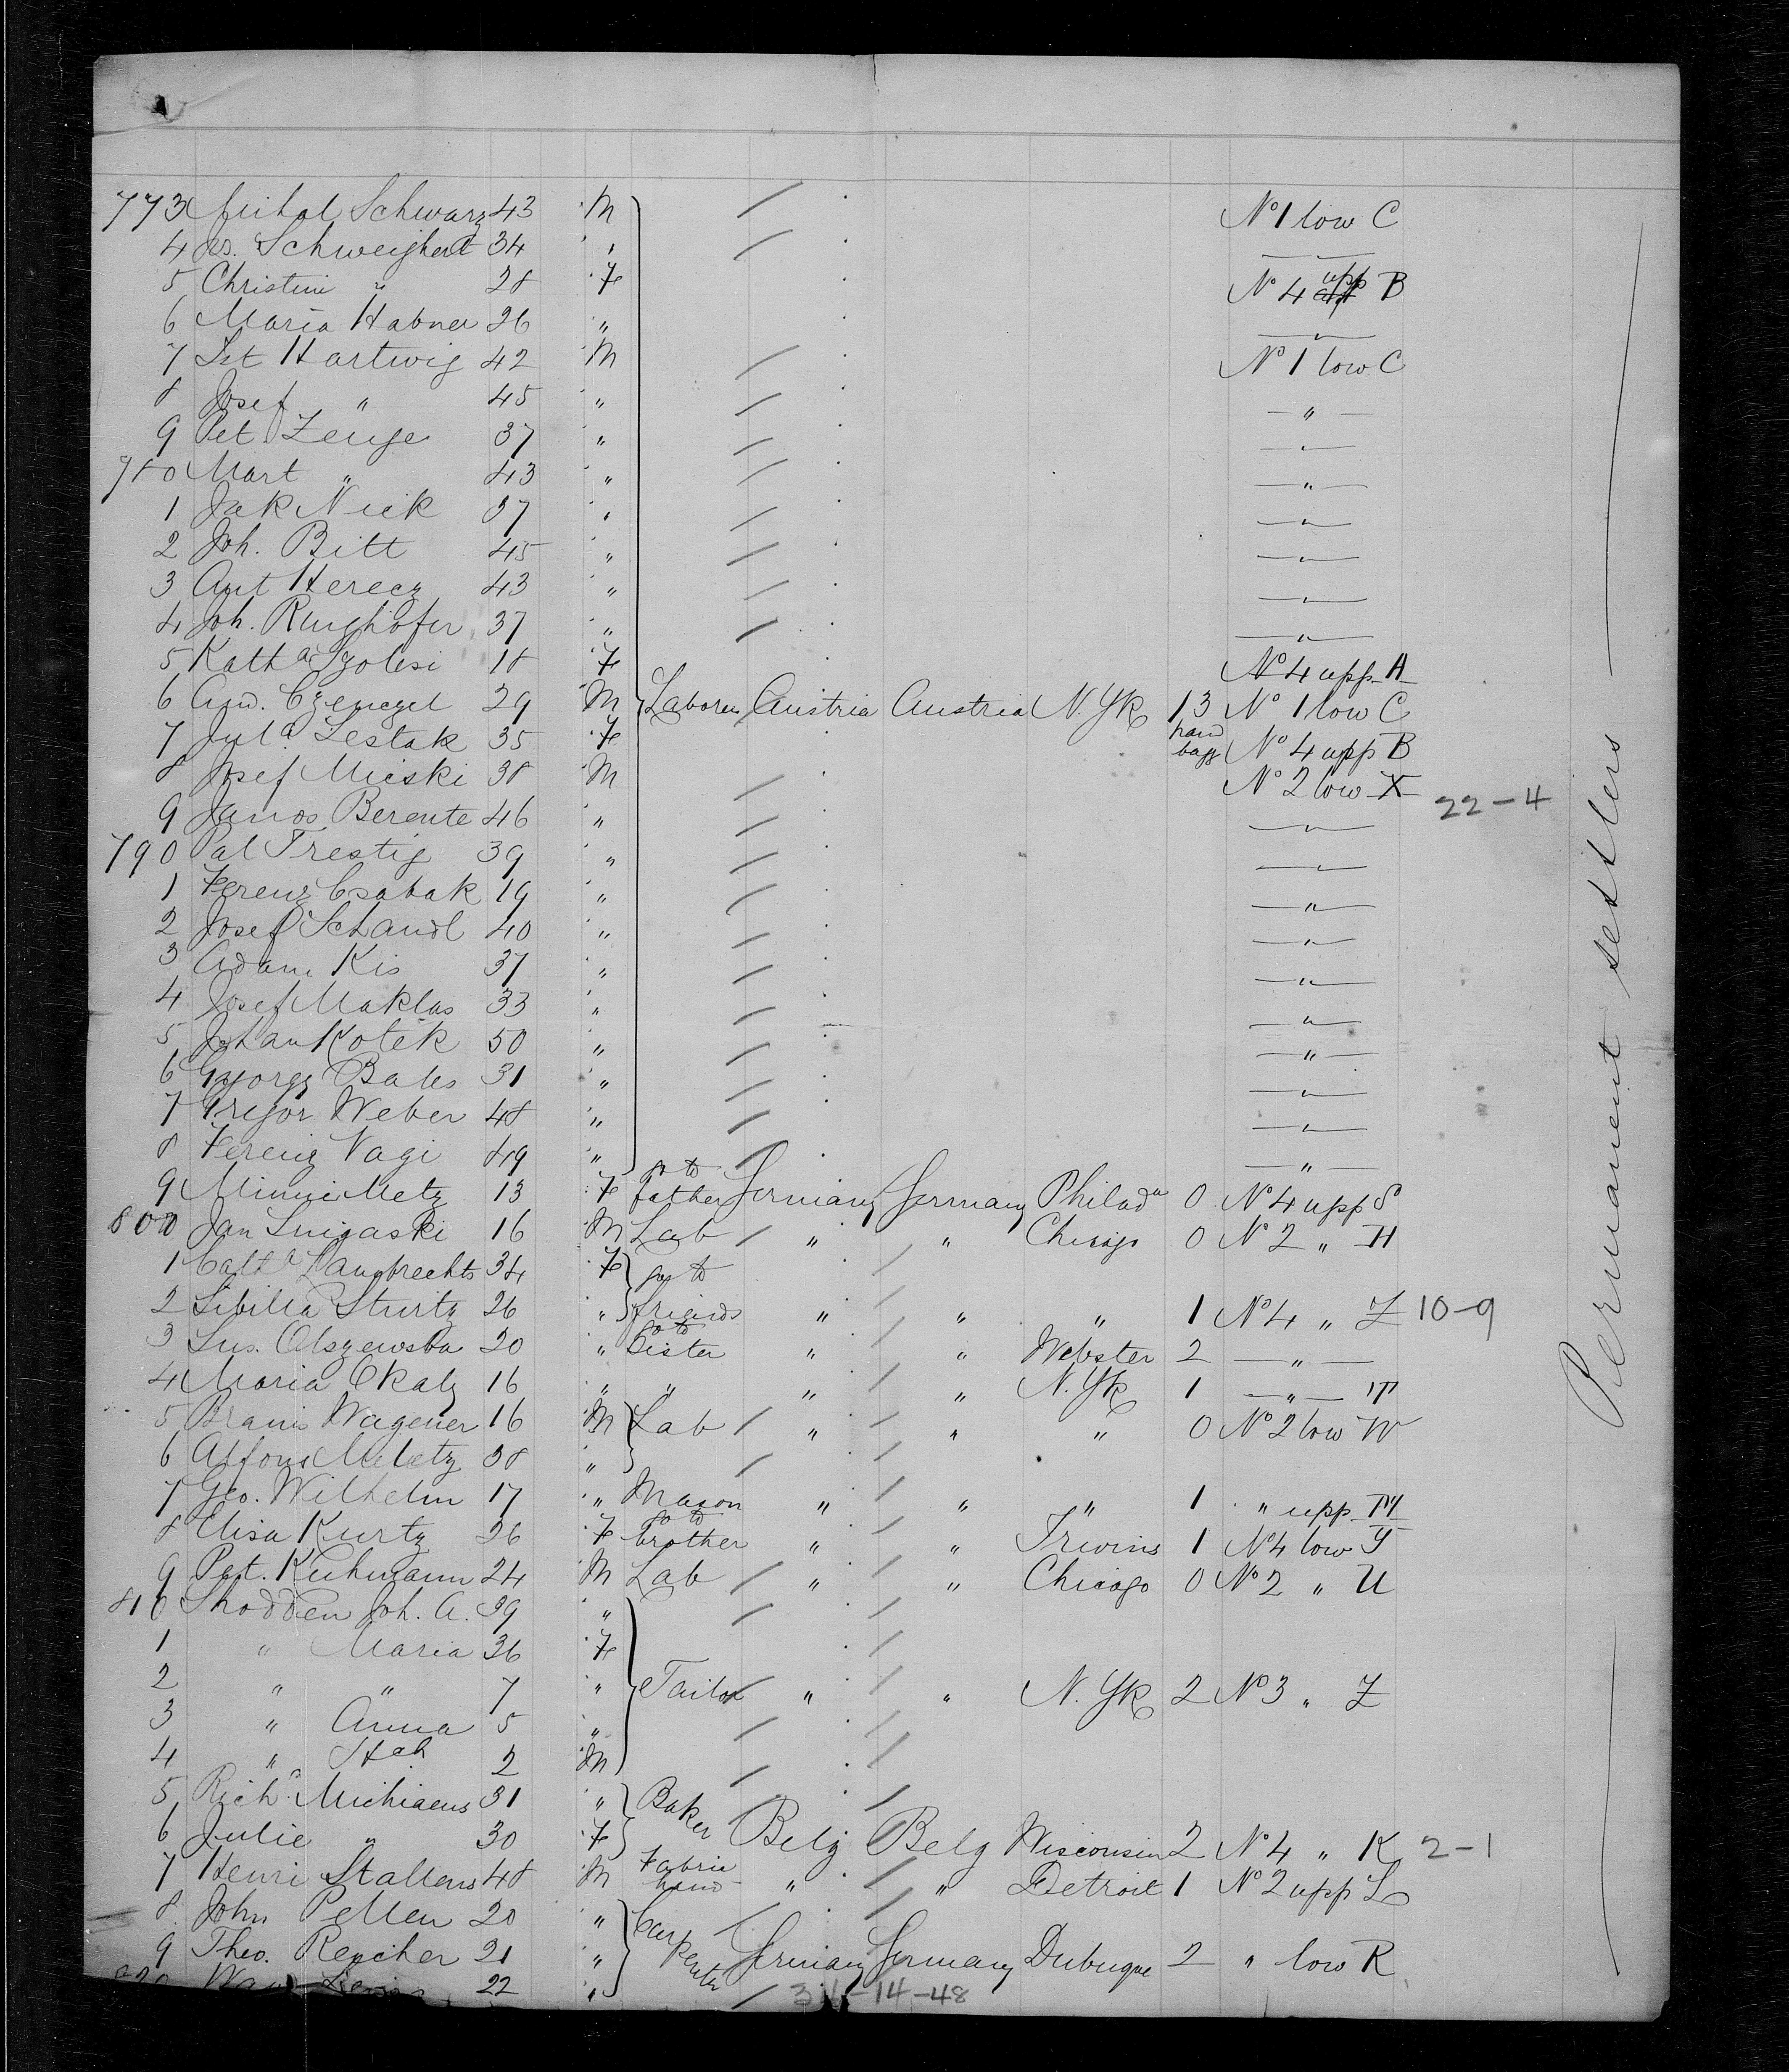 773 Mihal Schwarz 43 M No 1 low C
4 Jos. Schweighert 34 "
5 Christine " 28 F No 4 upp B
6 Maria Habner 26 " "
7 Pet Hartwig 42 M No 1 low C
8 Josef " 45 " "
9 Pet. Zenge 37 " "
780 Mart " 43 " "
1 Jak Nick 37 " "
2 Joh. Bitt 45 " "
3 Ant Herecz 43 " "
4 Joh. Ringhofer 37 " "
5 Katha 18 F No 4 upp A
6 And. 29 M Laborers Austria Austria N. Yk 13 No 1 low C
7 Jula Lestak 35 F hand bagg No 4 upp B
8 Josef Micski 38 M No 2 low X
9 Janos Berente 46 " " 22-4
790 Pal Trestig 39 " "
1 Ferenz Csabak 19 " "
2 Josef Schandl 40 " "
3 Adam Kis 37 " "
4 Josef Maklas 33 " "
5 Johan Kotek 50 " "
6 Gyorgy 31 " "
7 Gregor Weber 48 " "
8 Ferenz Vagi 49 " "
9 Minnie Metz 13 F go to father Germany Germany Philada 0 No 4 upp S
800 Jan 16 M Lab " " Chicago 0 No 2 " H
1 Catha Lambrechts 34 F go to
2 Sibilla Sturtz 26 " friends " " " 1 No 4 " Z 10-9
3 Sus. Olszewska 20 " go to Sister " " Webster 2 "
4 Maria 16 " " " " N. Yk 1 " T
5 Wagener 16 M Lab " " " 0 No 2 low W
6 Alfons 38 "
7 Geo. Wilhelm 17 " Mason " " " 1 " upp
8 Elisa Kurtz 26 F go to brother " " Irwins 1 No 4 low
9 Pet. Kuhmann 24 M Lab " " Chicago 0 No 2 " U
810 Shodden Joh. A. 39 "
1 " Maria 36 F
2 " " 7 " Tailor " " N. Yk 2 No 3 " Z
3 " Anna 5 "
4 " 2 M
5 Richd Michiaens 31 " Baker
6 Julie " 30 F Belg Belg Wisconsin 2 No 4 " K 2-1
7 Henri Stallens 48 M Fabric hand " " Detroit 1 No 2 upp L
8 John Pellen 20 " Carpenter
9 Theo. Rencher 21 " Germany Germany Dubuque 2 " low R
820 22 "
14-48
Permanent settlers